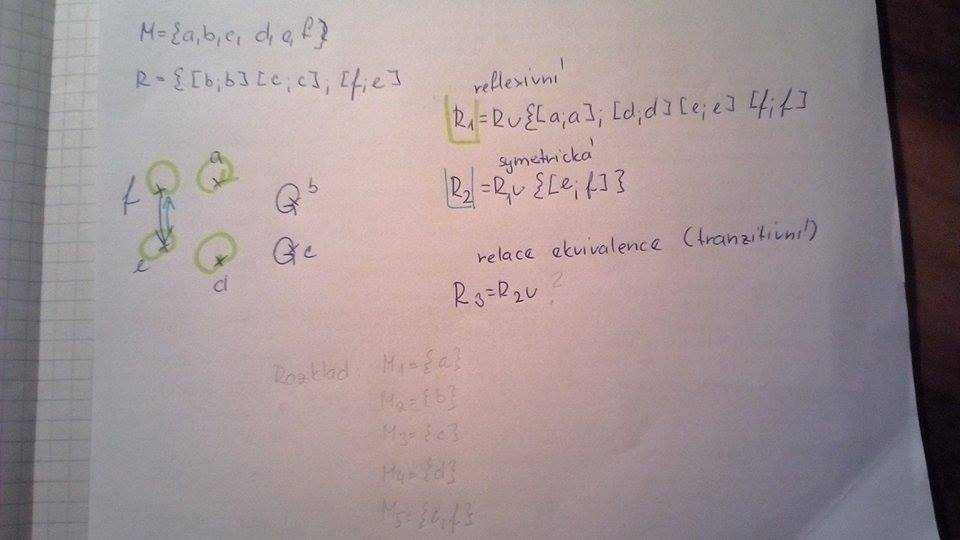 M={a,b,c, d,e,f}
R={[b;b][c;c];[f;e]
reflexivní
R1=R∪{[a;a];[d;d][e;e] [f;f]
symetrická
R2=R1∪{[e;f]}
relace ekvivalence (tranzitivní)
R3=R2∪ ?
f
a
b
e
d
c
Rozklad M1={a}
M2={b}
M3={c}
M4={d}
M5={e,f}